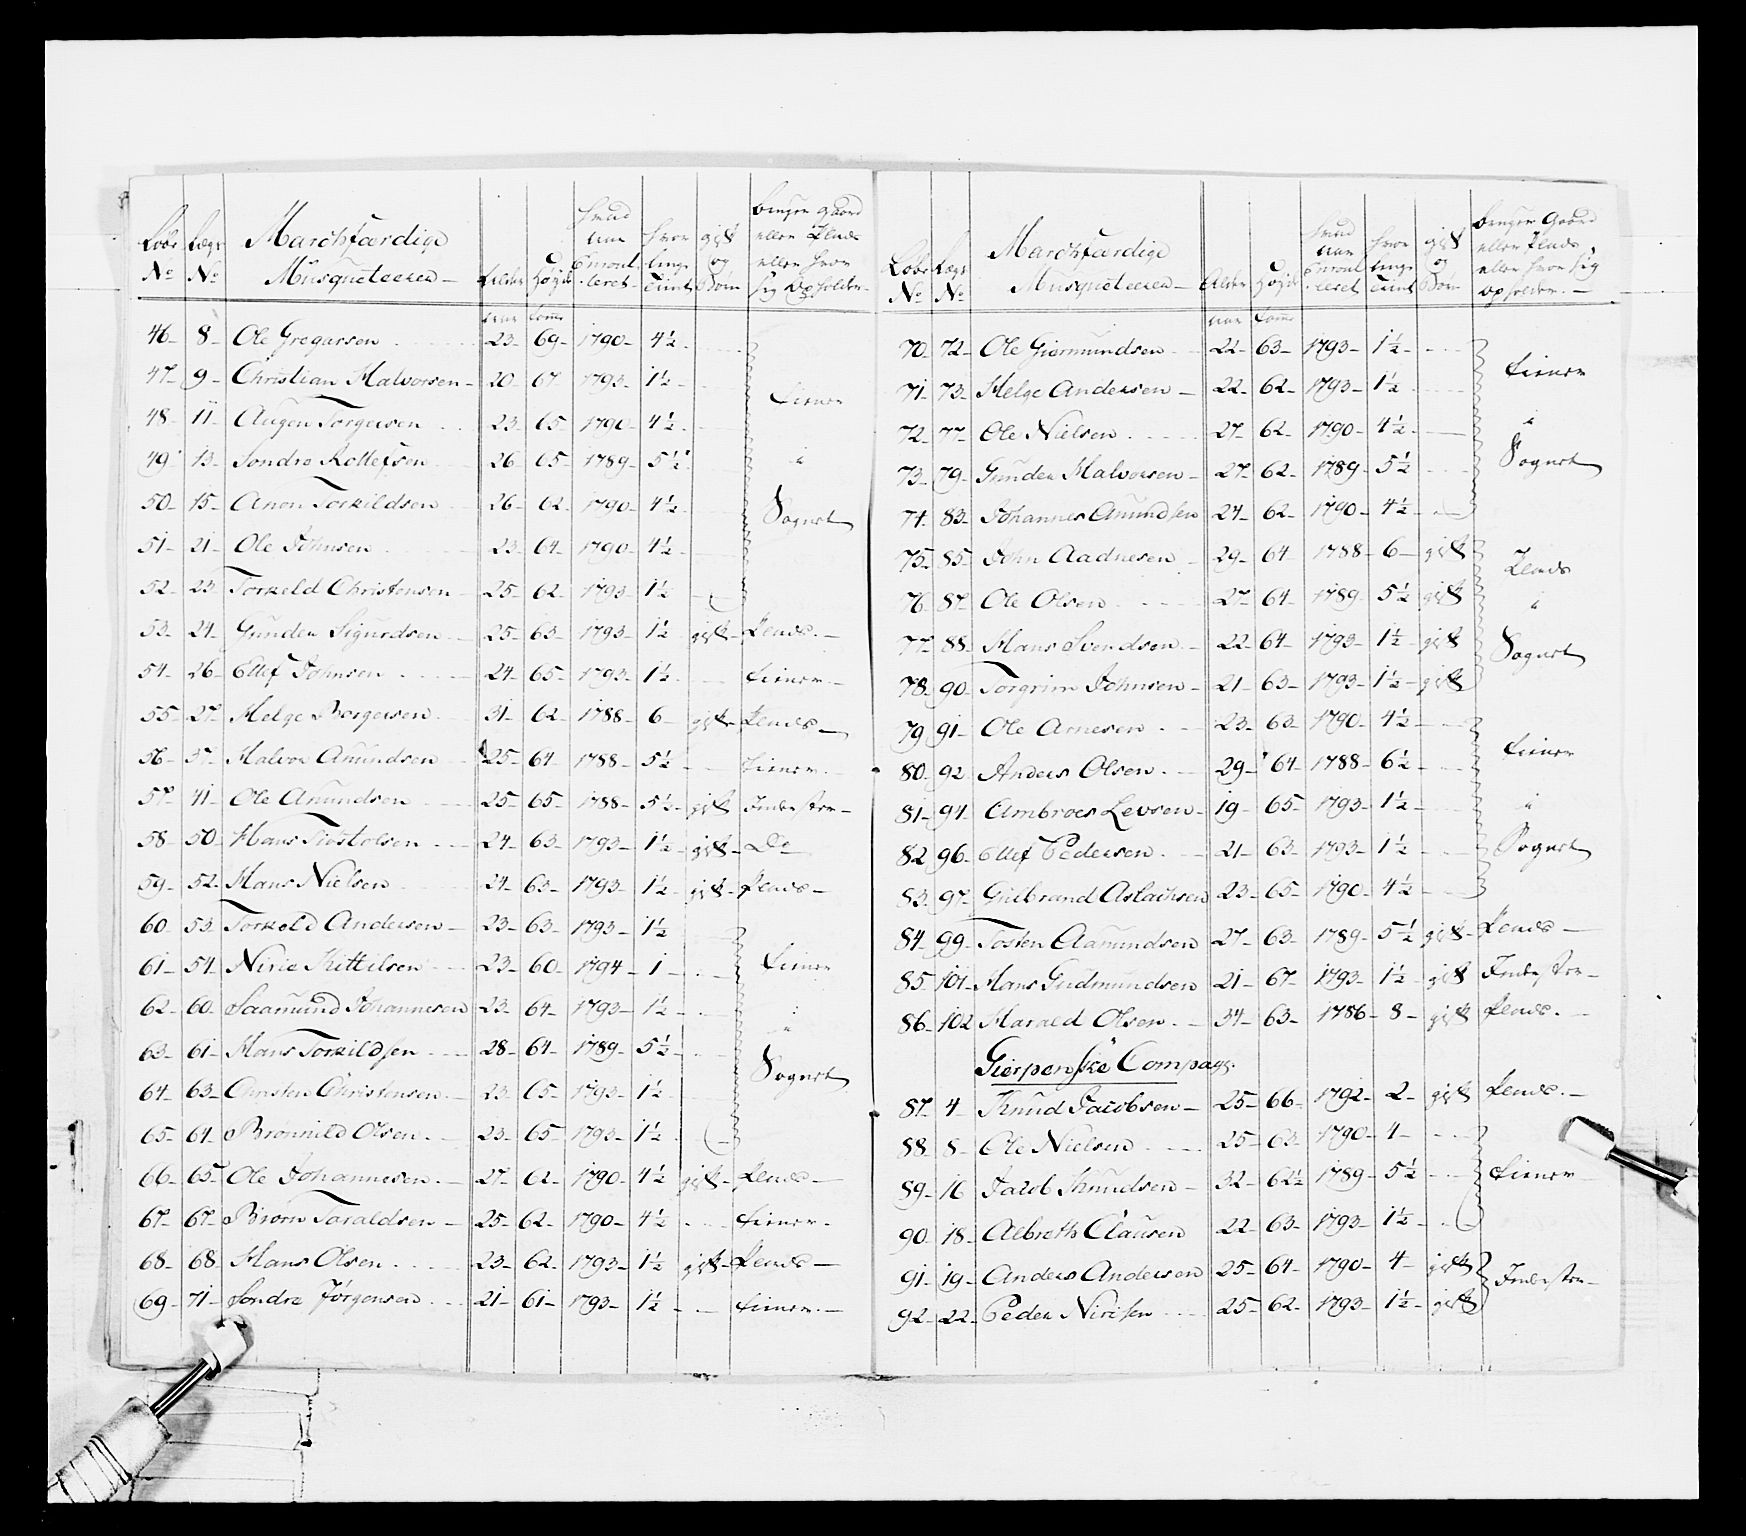 Løbe No Lægs No Marchfærdige Musqueteerer Alder Høyde hvad Aar Enroulleret hvor længe tient gift og Børn bruger Gaard eller Plads eller hvor sig opholder
Aar Tomr
46 8 Ole Gregarsen 23 69 1790 4½
47 9 Christian Halvorsen 20 67 1793 1½ tiener
48 11 Augen Torgersen 23 65 1790 4½
49 13 Sondre Rollefsen 26 65 1789 5½ i
50 15 Anon Torkildsen 26 62 1790 4½ Sognet
51 21 Ole Johnsen 23 64 1790 4½
52 23 Torkeld Christensen 25 62 1793 1½
53 24 Gunder Sigurdsen 25 63 1793 1½ gift Plads
54 26 Ellef Johnsen 24 65 1793 1½ tiener
55 27 Helge Borgersen 31 62 1788 6 gift Plads
56 37 Halvor Amundsen 25 64 1788 5½ tiener
57 41 Ole Amundsen 25 65 1788 5½ gift Inderster
58 50 Hans Tiostolsen 24 63 1793 1½ gift Do
59 52 Hans Nielsen 24 63 1793 1½ gift Plads
60 53 Torkeld Andersen 23 63 1793 1½
61 54 Nirie Kittilsen 23 60 1794 1 tiener
62 60 Saamund Johannesen 23 64 1793 1½ i
63 61 Hans Torkildsen 28 64 1789 5½ Sognet
64 63 Christen Christensen 23 65 1793 1½
65 64 Brønnild Olsen 23 65 1793 1½
66 65 Ole Johannesen 27 62 1790 4½ gift Plads
67 67 Biørn Taraldsen 25 62 1790 4½ tiener
68 68 Hans Olsen 23 62 1793 1½ gift Plads
69 71 Sondre Jørgensen 21 61 1793 1½ tiener
Løbe No Lægs No Marchfærdige Musqueteerer Alder Høyde hvad Aar Enroulleret hvor længe tient gift og Børn bruger Gaard eller Plads eller hvor sig opholder
Aar Tomr
70 72 Ole Giermundsen 22 63 1793 1½ tiener
71 73 Helge Andersen 22 62 1793 1½
72 77 Ole Nielsen 27 62 1790 4½ i
73 79 Gunder Halvorsen 27 62 1789 5½ Sognet
74 83 Johannes Amundsen 24 62 1790 4½
75 85 John Aadnesen 29 64 1788 6 gift Plads
76 87 Ole Olsen 27 64 1789 5½ gift i
77 88 Hans Svendsen 22 64 1793 1½ gift Sognet
78 90 Torgrim Johnsen 21 63 1793 1½ gift
79 91 Ole Arnesen 23 63 1790 4½
80 92 Anders Olsen 29 64 1788 6½ tiener
81 94 Ambroes Levsen 19 65 1793 1½ i
82 96 Ellef Pedersen 21 63 1793 1½ Sognet
83 97 Gulbrand Aslachsen 23 65 1790 4½
84 99 Tosten Aamundsen 27 63 1789 5½ gift Plads
85 101 Hans Gudmundsen 21 67 1793 1½ gift Inderster
86 102 Harald Olsen 34 63 1786 8 gift Plads
Gierpenske Compag:
87 4 Knud Jacobsen 25 66 1792 2 gift Plads
88 8 Ole Nielsen 25 63 1790 4
89 16 Jacob Knudsen 32 62½ 1789 5½ tiener
90 18 Albreth Clausen 22 63 1793 1½
91 19 Anders Andersen 25 64 1790 4 gift Inderster
92 22 Peder Nirisen 25 62 1793 1½ gift